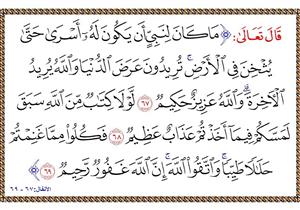 قَالَ تَعَالَىٰ: ﴿مَا كَانَ لِنَبِيٍّ أَن يَكُونَ لَهُۥٓ أَسْرَىٰ حَتَّىٰ
يُثْخِنَ فِي ٱلْأَرْضِ ۚ تُرِيدُونَ عَرَضَ ٱلدُّنْيَا وَٱللَّهُ يُرِيدُ
ٱلْآخِرَةَ ۗ وَٱللَّهُ عَزِيزٌ حَكِيمٌ ٦٧ لَّوْلَا كِتَٰبٌ مِّنَ ٱللَّهِ سَبَقَ
لَمَسَّكُمْ فِيمَآ أَخَذْتُمْ عَذَابٌ عَظِيمٌ ٦٨ فَكُلُوا۟ مِمَّا غَنِمْتُمْ
حَلَٰلًا طَيِّبًا ۚ وَٱتَّقُوا۟ ٱللَّهَ ۚ إِنَّ ٱللَّهَ غَفُورٌ رَّحِيمٌ ٦٩﴾
الأنفال: ٦٧ - ٦٩